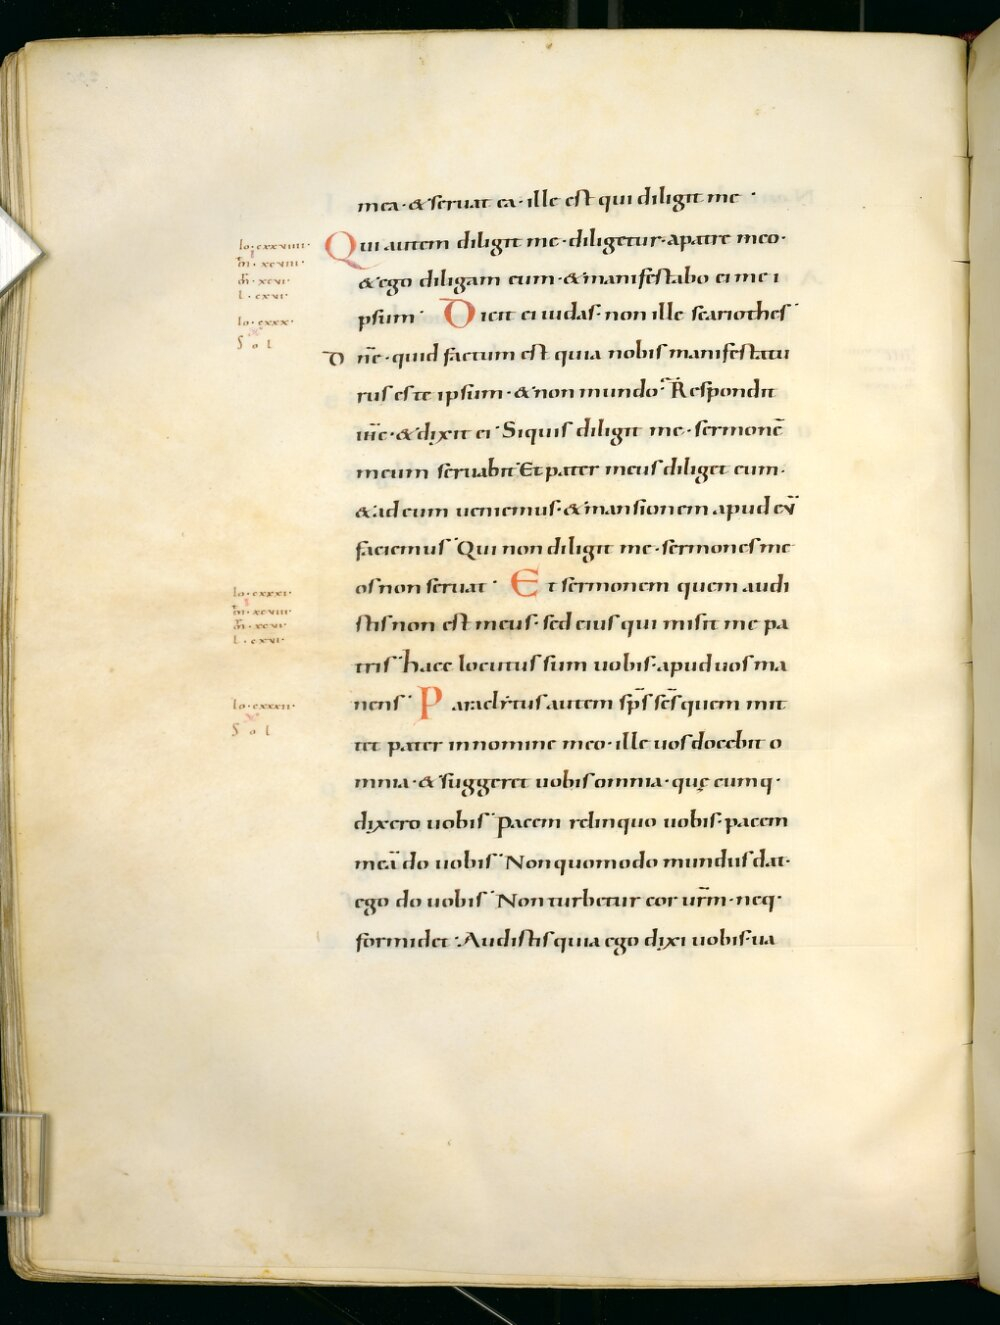 mea · & seruat ea · ille est qui diligit me ·
Io · cxxviiii ·
Qui autem diligit me · diligetur · a patre meo ·
m̄ · xcviii ·
m̄ · xcvi ·
& ego diligam eum · & manifestabo ei me i
l · cxvi ·
Io · cxxx ·
psum · Dicit ei iudas · non ille scariothes ·
S o l
Dn̄e · quid factum est quia nobis manifestatu
rus es te ipsum · & non mundo · Respondit
ih̄c · & dixit ei · Siquis diligit me · sermonē
meum seruabit · Et pater meus diliget eum ·
& ad eum ueniemus · & mansionem apud eū
faciemus · Qui non diligit me · sermones me
os non seruat · Et sermonem quem audi
Io · cxxxi ·
m̄ · xcviii ·
stis non est meus · sed eius qui misit me pa
m̄ · xcvi ·
l · cxvi ·
tris · haec locutus sum uobis · apud uos ma
Io · cxxxii ·
nens · Paraclitus autem sp̄s sc̄s quem mit
S o l
tet pater in nomine meo · ille uos docebit o
mnia · & suggeret uobis omnia · quę cumq ·
dixero uobis · pacem relinquo uobis · pacem
meā do uobis · Non quomodo mundus dat ·
ego do uobis · Non turbetur cor ur̄m · neq ·
formidet · Audistis quia ego dixi uobis · ua